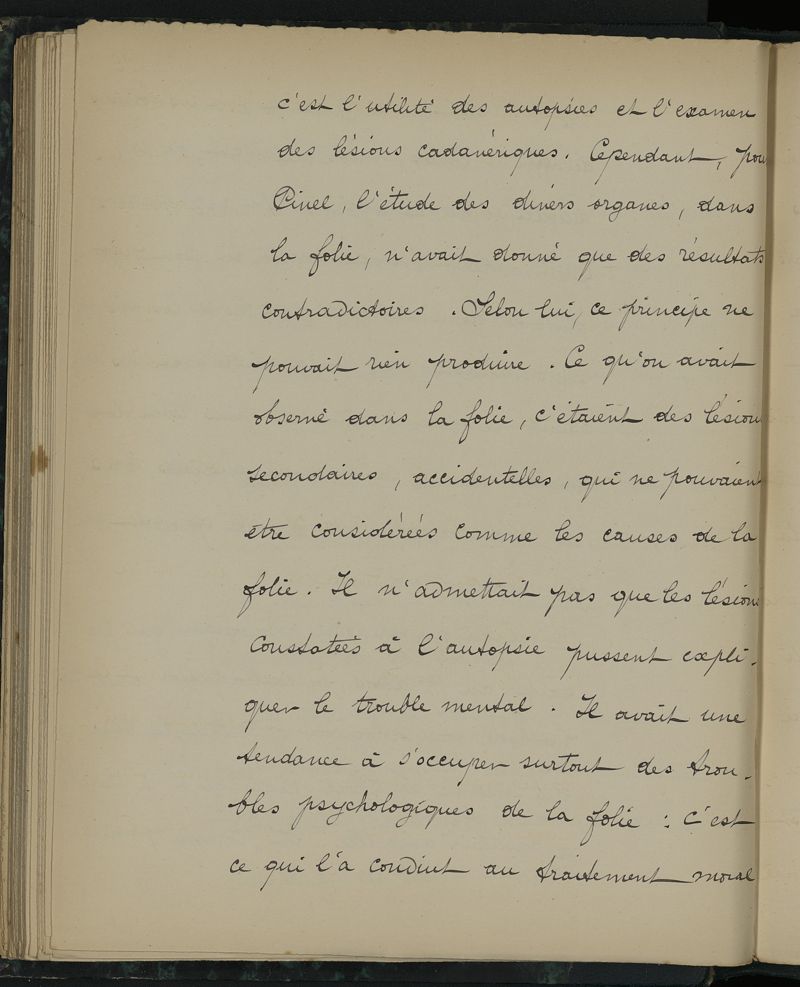 c'est l'utilité des autopsies et l'examen
des lésions cadavériques. Cependant, pour
Pinel, l'étude des divers organes, dans
la folie, n'avait donné que des résultats
contradictoires. Selon lui, ce principe ne
pouvait rien produire. Ce qu'on avait
observé dans la folie, c'étaient des lésions
secondaires, accidentelles, qui ne pouvaient
être considérées comme les causes de la
folie. Il n'admettait pas que les lésions
constatées à l'autopsie pussent expli-
quer le trouble mental. Il avait une
tendance à s'occuper surtout des trou-
bles psychologiques de la folie : c'est
ce qui l'a conduit au traitement moral